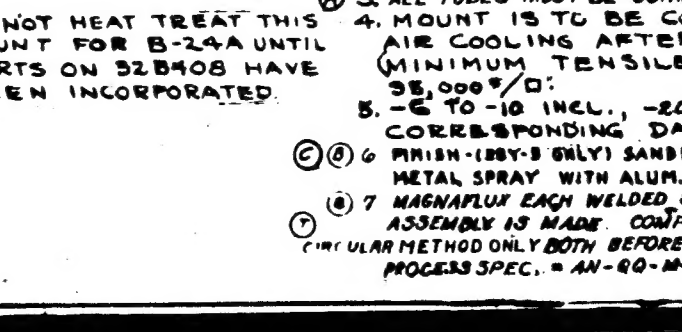 NOT HEAT TREAT THIS
UNT FOR B-24A UNTIL
RTS ON 32B408 HAVE
EN INCORPORATED.
4. MOUNT IS TO BE C
AIR COOLING AFTER
(MINIMUM TENSILE
95,000 #/□.
5. TO -10 INCL.,
CORRESPONDING DA
C B 6 FINISH-( ONLY) SAND
METAL SPRAY WITH ALUM.
B 7 MAGNAFLUX EACH WELDED
ASSEMBLY IS MADE.
CIRCULAR METHOD ONLY BOTH BEFORE
PROCESS SPEC. AN-QQ-M